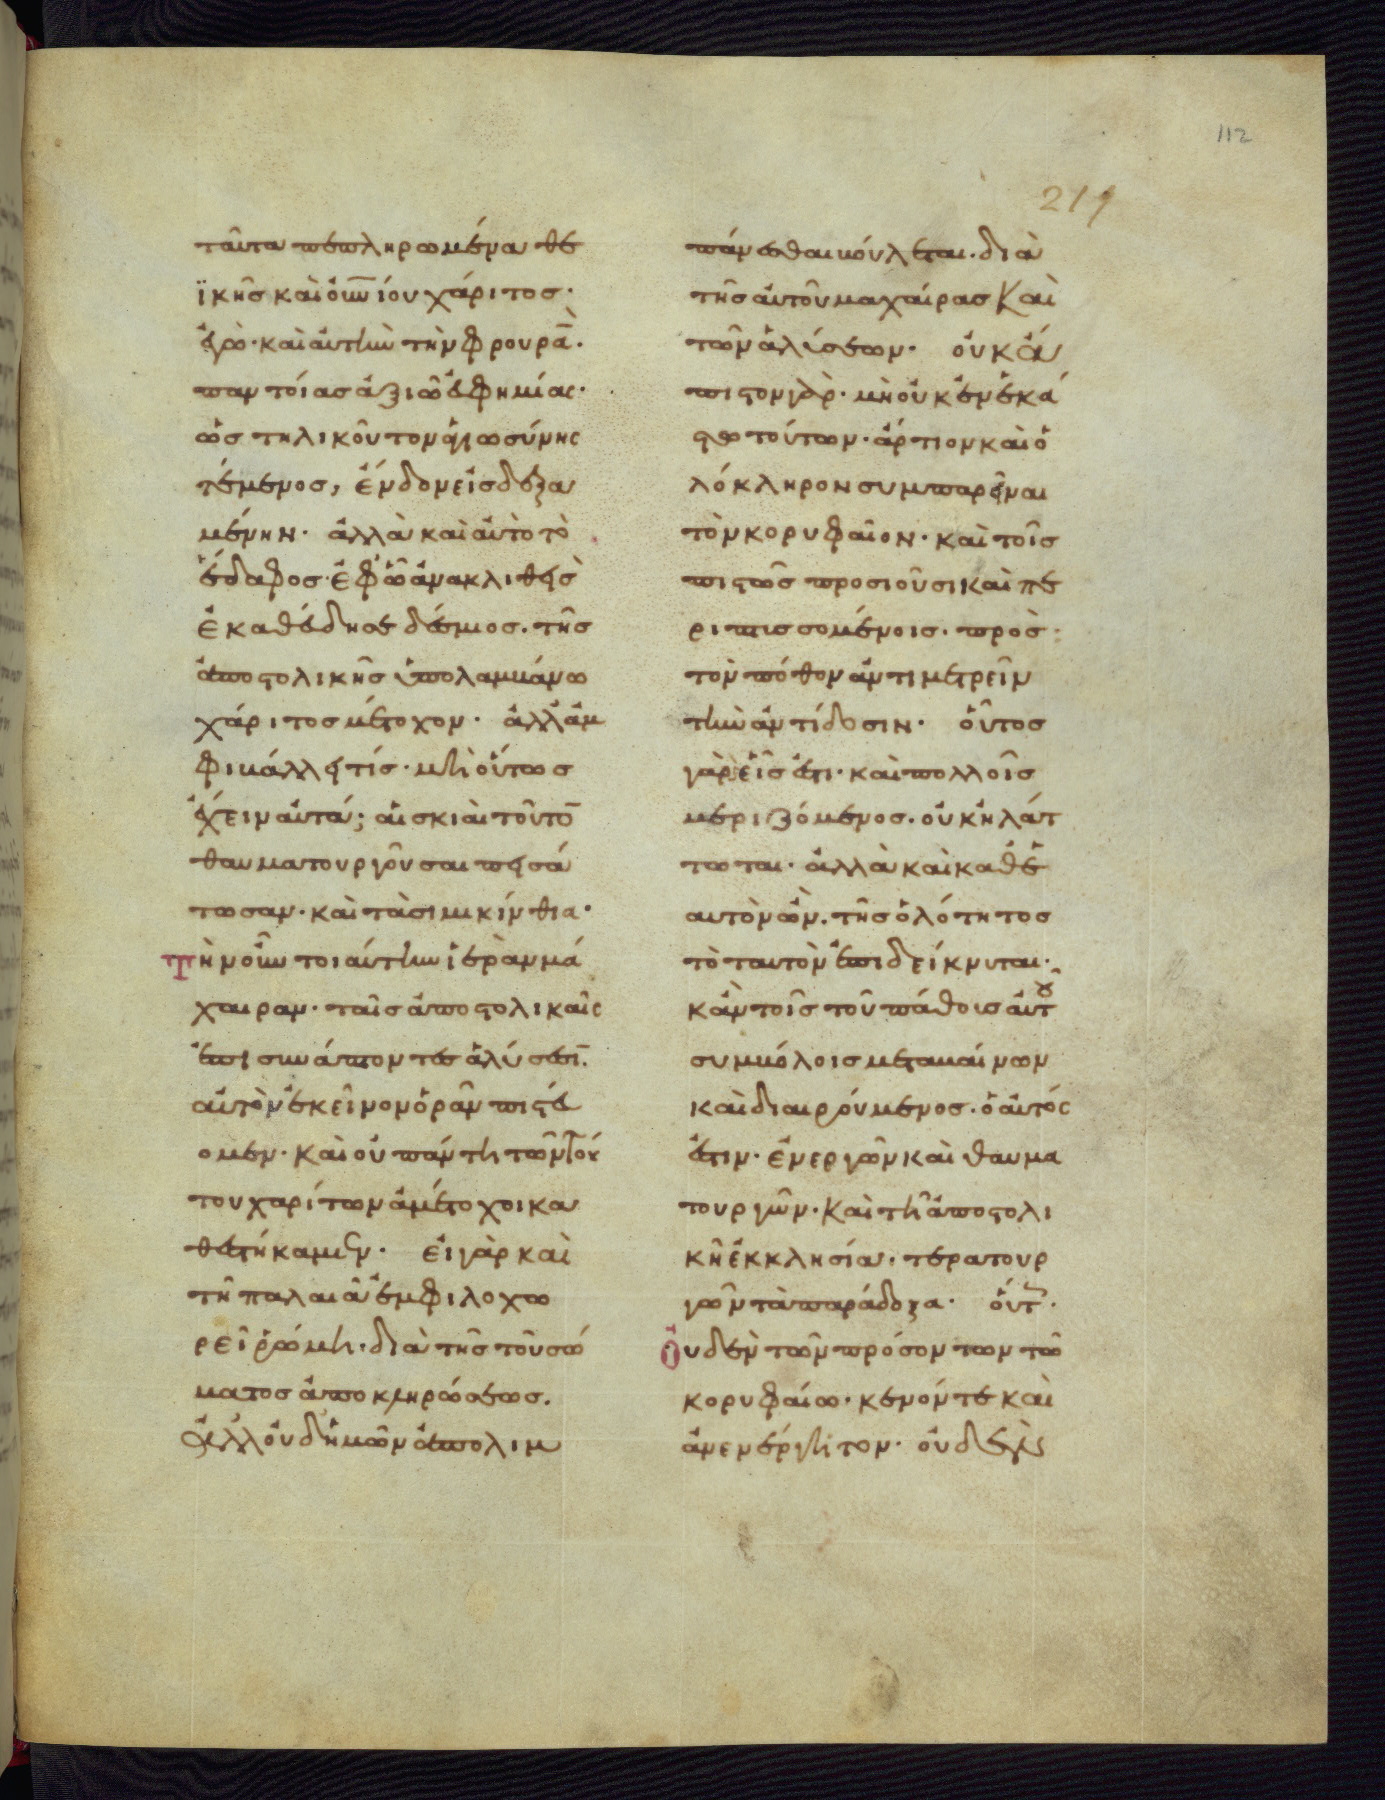 112
219
ταῦτα πεπληρωμένα θε
ϊκῆς καὶ ὁσίου χάριτος·
ἐγὼ· καὶ αὐτὴν τὴν φρουρὰ̄·
παντοίας ἀξιῶ εὐφημίας·
ὡς τηλικοῦτον ἁγιωσύνης
τέμενος, ἔνδον εἰσδεξα
μένην· ἀλλὰ καὶ αὐτὸ τὸ
ἔδαφος· ἐφ' ᾧ ἀνακλιθεὶς
ἐκαθεύδησε δέσμιος· τῆς
ἀποστολικῆς ὑπολαμβάνω
χάριτος μέτοχον· ἀλλ' ἀμ
φιβάλλει τίς· μὴ οὕτως
ἔχειν αὐτά; αἱ σκιαὶ τοῦτο̄
θαυματουργοῦσαι πεισά
τωσαν· καὶ τὰ σιμικίνθια·
Τὴν οὖν τοιαύτην ἱερὰν μά
χαιραν· ταῖς ἀποστολικαῖς
ἐπισυνάπτοντες ἁλύσεσῑ·
αὐτὸν ἐκεῖνον ὁρᾶν πιστεύ
ομεν· καὶ οὐ πάντη τῶν τού
του χαρίτων ἀμέτοχοι κα
θεστήκαμεν· εἰ γὰρ καὶ
τῆ παλαιᾶ ἐμφιλοχω
ρεῖ ῥώμη· διὰ τῆς τοῦ σώ
ματος ἀποκληρώσεως·
ἀλλ' οὐδ' ἡμῶν ἀπολιμ
πάνεσθαι βούλεται· διὰ
τῆς αὐτοῦ μαχαίρας καὶ
τῶν ἁλύσεων· οὐκ ἄ
πιστον γὰρ· μὴ οὐκ ἐν ἑκά
στω τούτων· ἄρτιον καὶ ὁ
λόκληρον συμπαρεῖναι
τὸν κορυφαῖον· καὶ τοῖς
πιστῶς προσιοῦσι καὶ πε
ριπτυσσομένοις· πρὸς
τὸν πόθον ἀντιμετρεῖν
τὴν ἀντίδοσιν· οὗτος
γὰρ εἷς ἐστι· καὶ πολλοῖς
μεριζόμενος· οὐκ ἠλάτ
τωται· ἀλλὰ καὶ καθ' ἑ
αυτὸν ὢν· τῆς ὁλότητος
τὸ ταυτὸν ἐπιδείκνυται·
κἂν τοῖς τοῦ πάθους αὐτοῦ
συμβόλοις μεταβαίνων
καὶ διαιρούμενος· ὁ αὐτός
ἐστιν· ἐνεργῶν καὶ θαυμα
τουργῶν· καὶ τῆ ἀποστολι
κῆ ἐκκλησία· τερατουρ
γῶν τὰ παράδοξα· οὕτω·
Οὐδὲν τῶν προσόντων τῶ
κορυφαίω· κενόν τε καὶ
ἀνενέργητον· οὐδὲ γὰρ